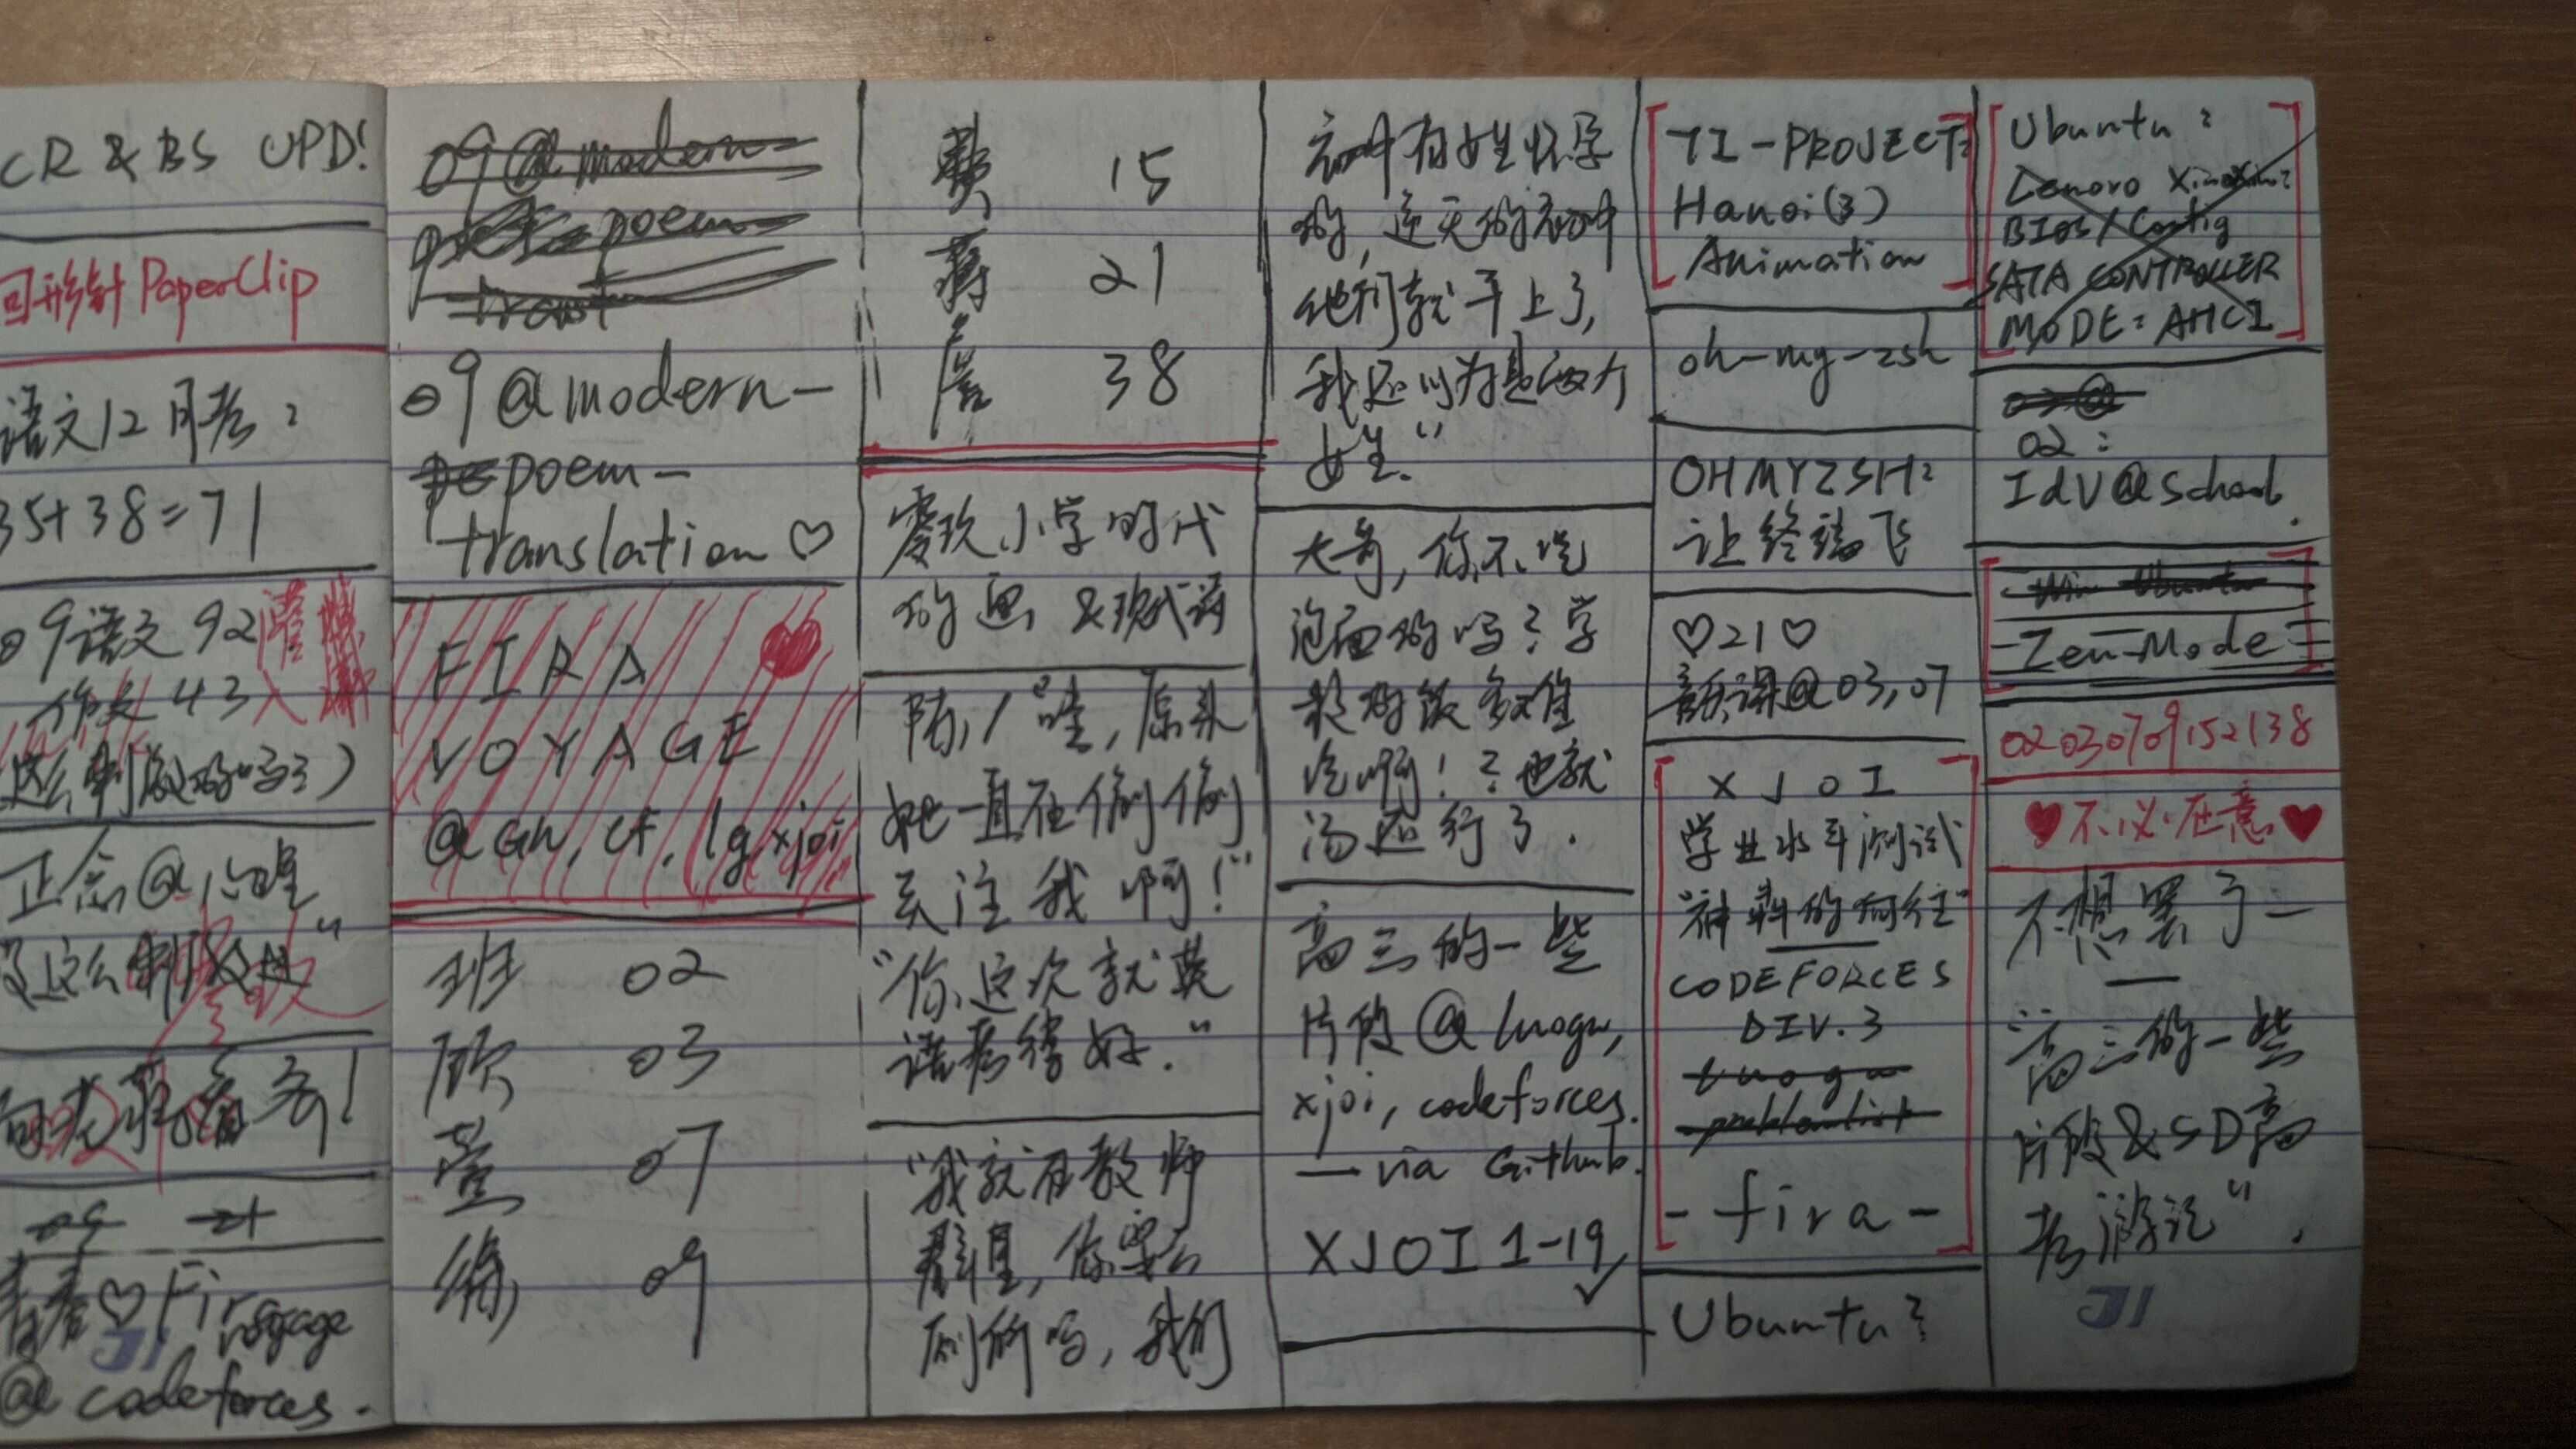 CR & BS UPD!
回形针 PaperClip
语文12月考:
35+38=71
09语文 92
作文 43
这么刺激的吗?)
正念@心喔
这么刺激
@ codeforces.
09@modern-
poem-
translation ♡
FIRA
VOYAGE
@GH, CF, lg, xjoi
班 02
顾 03
07
09
15
蒋 21
詹 38
零玖小学时代
的画 & 现代诗
陆: "哇, 原来
她一直在偷偷
关注我啊!"
"你这次就英
语考得好."
"我就在教师
群里, 你要去
厕所吗, 我们
初中有女生怀孕
的, 逆天的初中
他们就早上了,
我还以为是
女生."
大哥, 你不吃
泡面的吗? 学
校的饭多难
吃啊!? 也就
汤还行了.
高三的一些
片段@luogu,
xjoi, codeforces.
—via Github.
XJOI 1-19 ✓
TI-PROJECT:
Hanoi(3)
Animation
oh-my-zsh
OHMYZSH:
让终端飞
♡21♡
音乐课@03,07
XJOI
学业水平测试
"神犇的向往"
CODEFORCES
DIV.3
luogu
problemlist
-fira-
Ubuntu?
Ubuntu:
Lenovo
BIOS/Config
SATA CONTROLLER
MODE: AHCI
02:
IdV@School.
-Zen-Mode-
0203070915 2138
♥不必在意♥
不想罢了—
—
"高三的一些
片段&SD高
考游记".